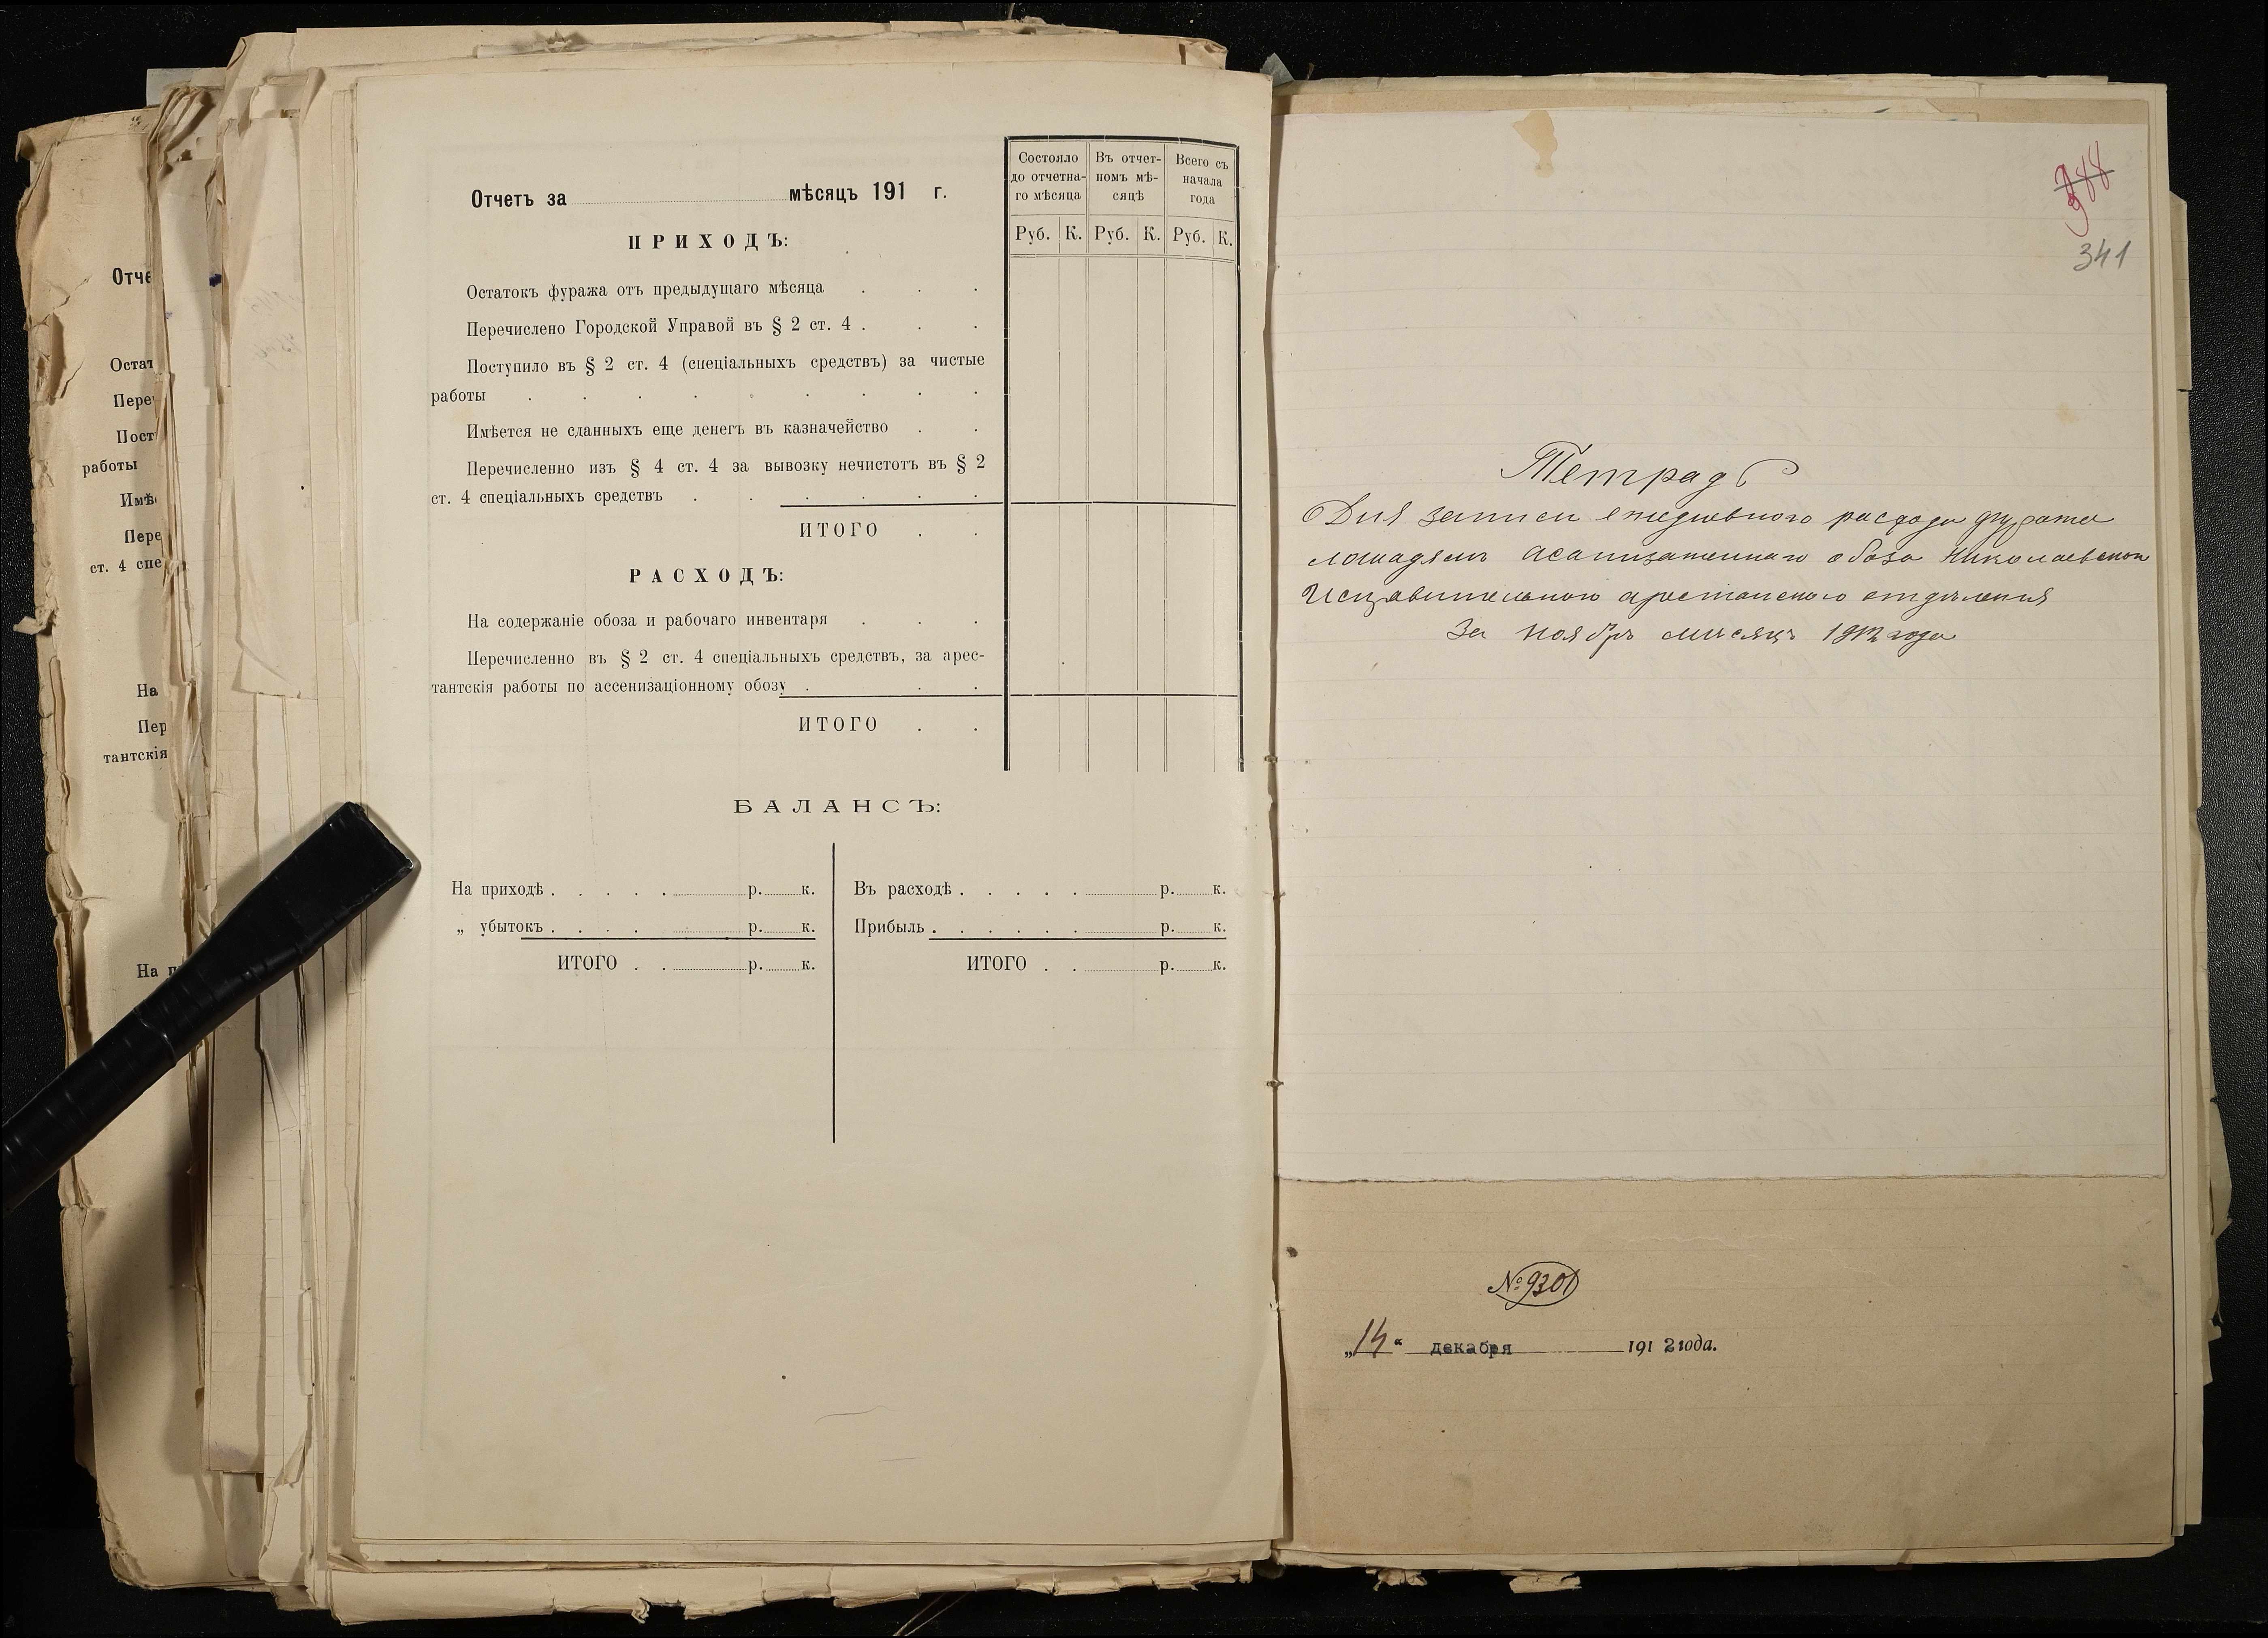 Отче
Остат
Пере
Пост
работы
Имѣ
Пере
ст. 4 спе
На
Пер
тантскія
На п
Отчетъ за мѣсяцъ 191 г.
Состояло до отчетна-го мѣсяца
Въ отчет-номъ мѣ-сяцѣ
Всего съ начала года
Руб. К. Руб. К. Руб. К.
ПРИХОДЪ:
Остатокъ фуража отъ предыдущаго мѣсяца . . .
Перечислено Городской Управой въ § 2 ст. 4 . . .
Поступило въ § 2 ст. 4 (спеціальныхъ средствъ) за чистые
работы . . . . . . . . .
Имѣется не сданныхъ еще денегъ въ казначейство . .
Перечисленно изъ § 4 ст. 4 за вывозку нечистотъ въ § 2
ст. 4 спеціальныхъ средствъ . . . . . .
ИТОГО . .
РАСХОДЪ:
На содержаніе обоза и рабочаго инвентаря . . .
Перечисленно въ § 2 ст. 4 спеціальныхъ средствъ, за арес-
тантскія работы по ассенизаціонному обозу . . .
ИТОГО . .
БАЛАНСЪ:
На приходѣ . . . . . р. к.
„ убытокъ . . . . р. к.
ИТОГО . . р. к.
Въ расходѣ . . . . . р. к.
Прибыль . . . . . . р. к.
ИТОГО . . р. к.
388
341
Тетрадь
Для записи ежедневного расхода фуража
лошадям асанизатеннаго обоза Николаевскои
Исправительного арестанского отделения
За ноябрь мѣсяцъ 1912 года
№ 9301
„14“ декабря 1912 года.